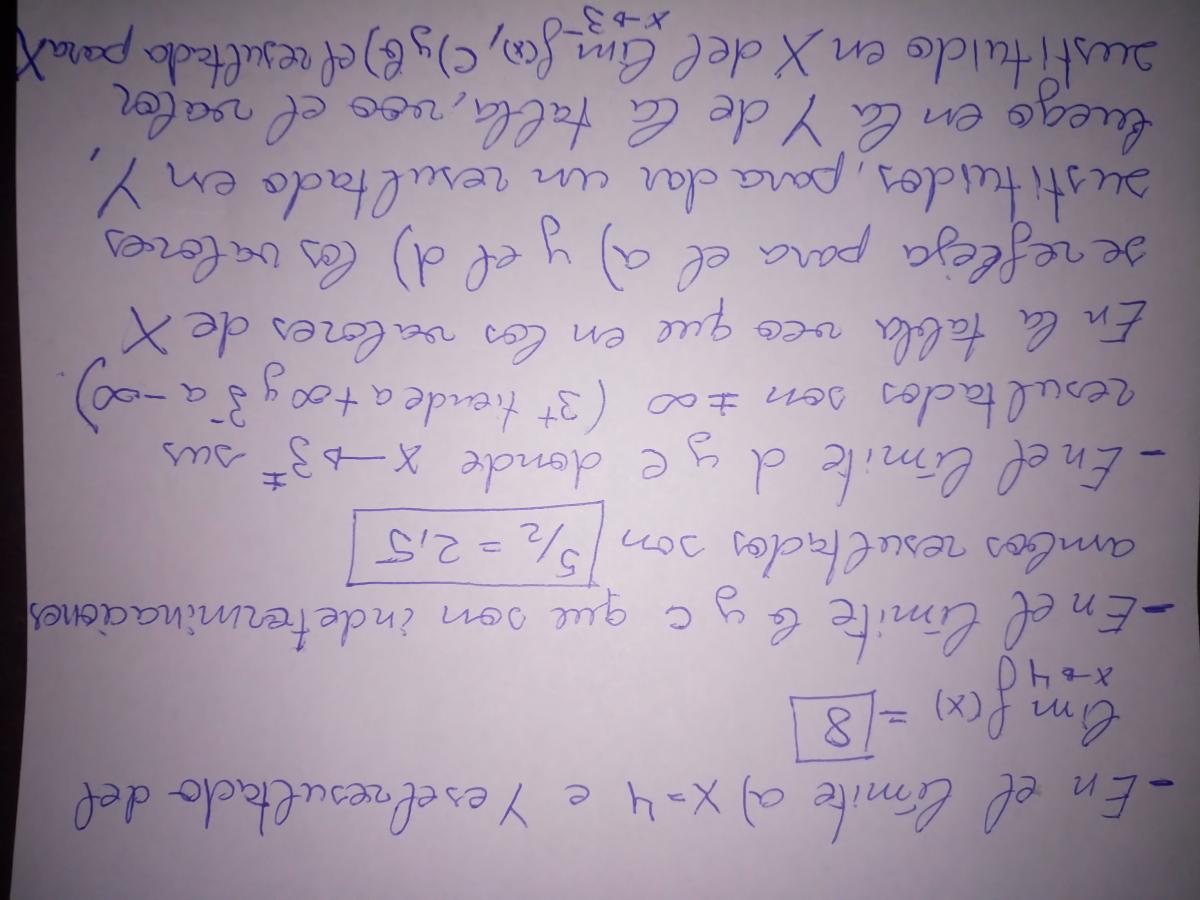 - En el límite a) x=4 e Y es el resultado del
lim f(x) = 8
x→4
- En el límite b y c que son indeterminaciones
ambos resultados son 5/2 = 2,5
- En el límite d y e donde x→3± sus
resultados son ±∞ (3+ tiende a +∞ y 3- a -∞)
En la tabla veo que en los valores de X
se refleja para el a) y el d) los valores
sustituidos, para dar un resultado en Y,
luego en la Y de la tabla, veo el valor
sustituido en X del lim f(x), c) y b) el resultado para X
x→3-